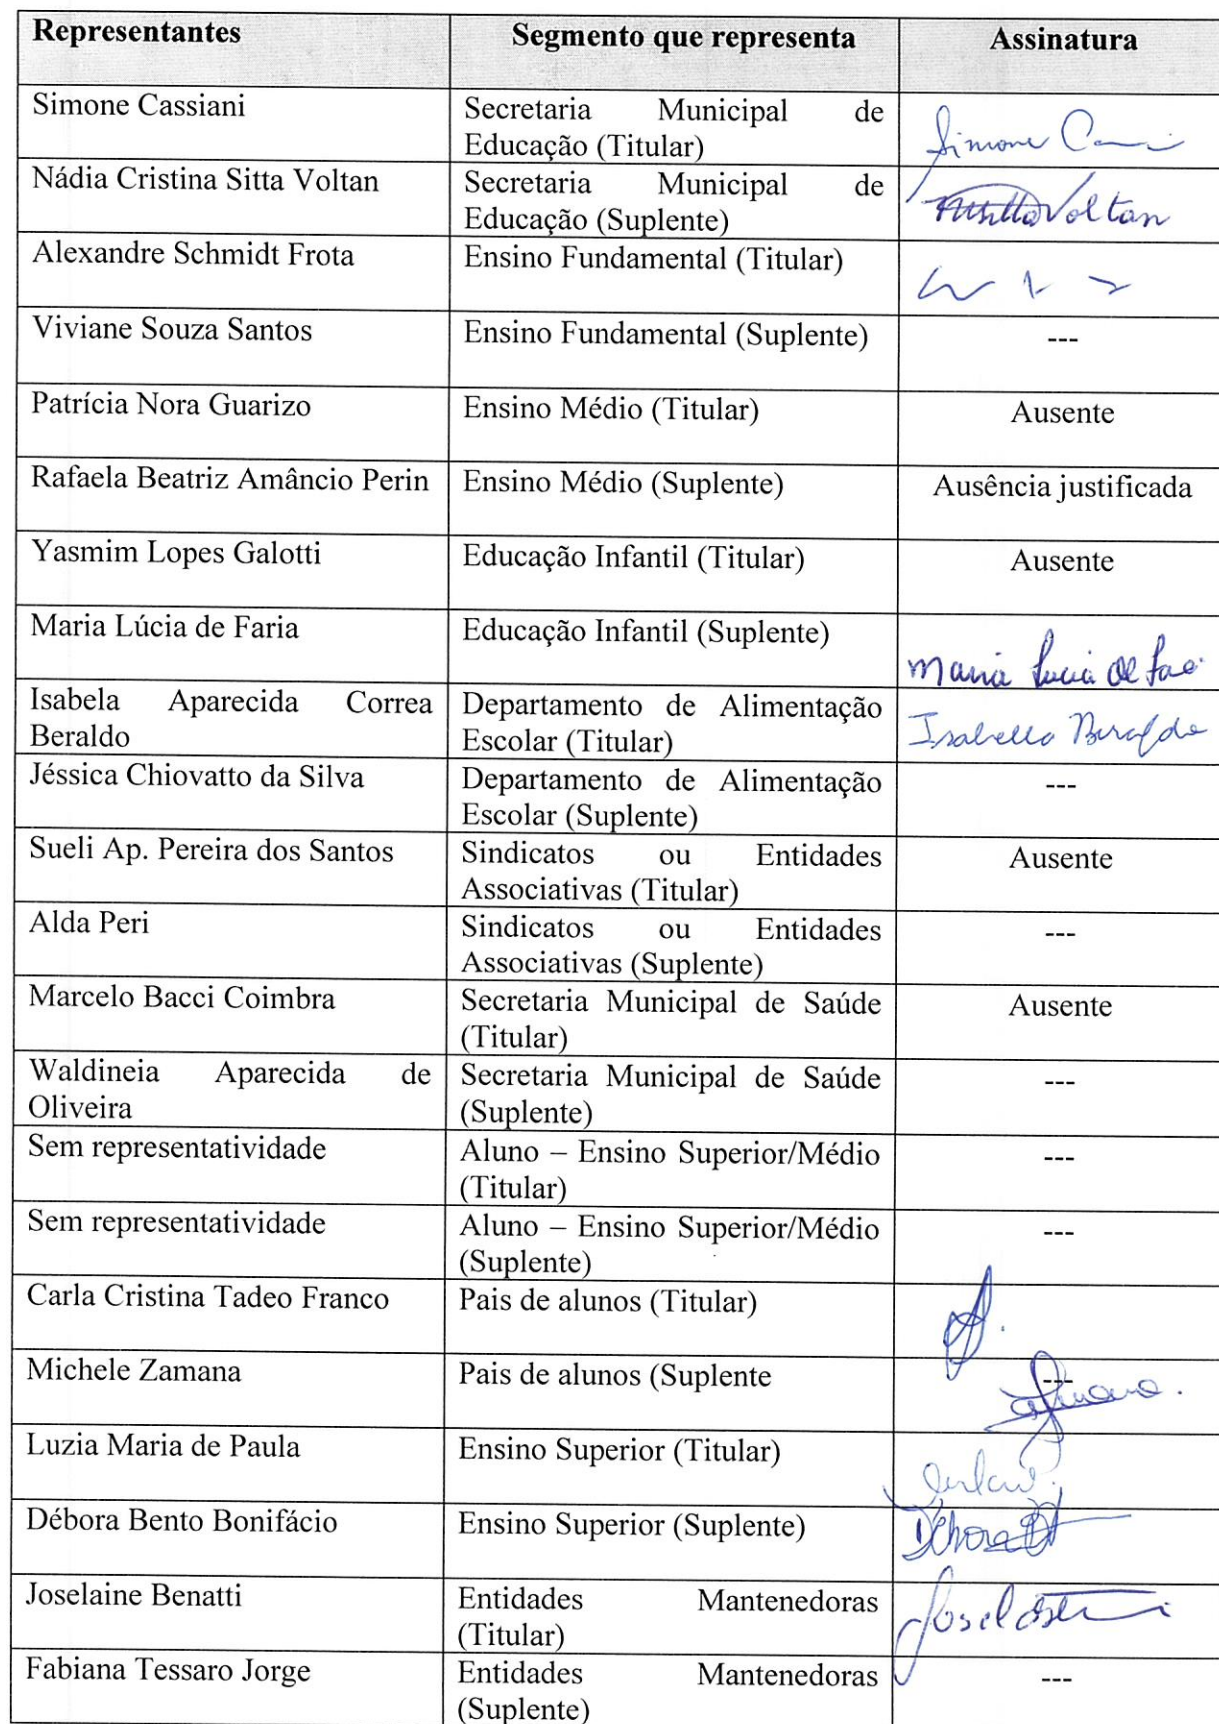 Representantes Segmento que representa Assinatura
Simone Cassiani Secretaria Municipal de
Educação (Titular) Simone
Nádia Cristina Sitta Voltan Secretaria Municipal de
Educação (Suplente) Voltan
Alexandre Schmidt Frota Ensino Fundamental (Titular)
Viviane Souza Santos Ensino Fundamental (Suplente) ---
Patrícia Nora Guarizo Ensino Médio (Titular) Ausente
Rafaela Beatriz Amâncio Perin Ensino Médio (Suplente) Ausência justificada
Yasmim Lopes Galotti Educação Infantil (Titular) Ausente
Maria Lúcia de Faria Educação Infantil (Suplente)
Maria Lucia de
Isabela Aparecida Correa Departamento de Alimentação
Beraldo Escolar (Titular) Isabella Beraldo
Jéssica Chiovatto da Silva Departamento de Alimentação ---
Escolar (Suplente)
Sueli Ap. Pereira dos Santos Sindicatos ou Entidades Ausente
Associativas (Titular)
Alda Peri Sindicatos ou Entidades ---
Associativas (Suplente)
Marcelo Bacci Coimbra Secretaria Municipal de Saúde Ausente
(Titular)
Waldineia Aparecida de Secretaria Municipal de Saúde ---
Oliveira (Suplente)
Sem representatividade Aluno – Ensino Superior/Médio ---
(Titular)
Sem representatividade Aluno – Ensino Superior/Médio ---
(Suplente)
Carla Cristina Tadeo Franco Pais de alunos (Titular)
Michele Zamana Pais de alunos (Suplente ---
Luzia Maria de Paula Ensino Superior (Titular)
Débora Bento Bonifácio Ensino Superior (Suplente) Débora
Joselaine Benatti Entidades Mantenedoras
(Titular)
Fabiana Tessaro Jorge Entidades Mantenedoras ---
(Suplente)